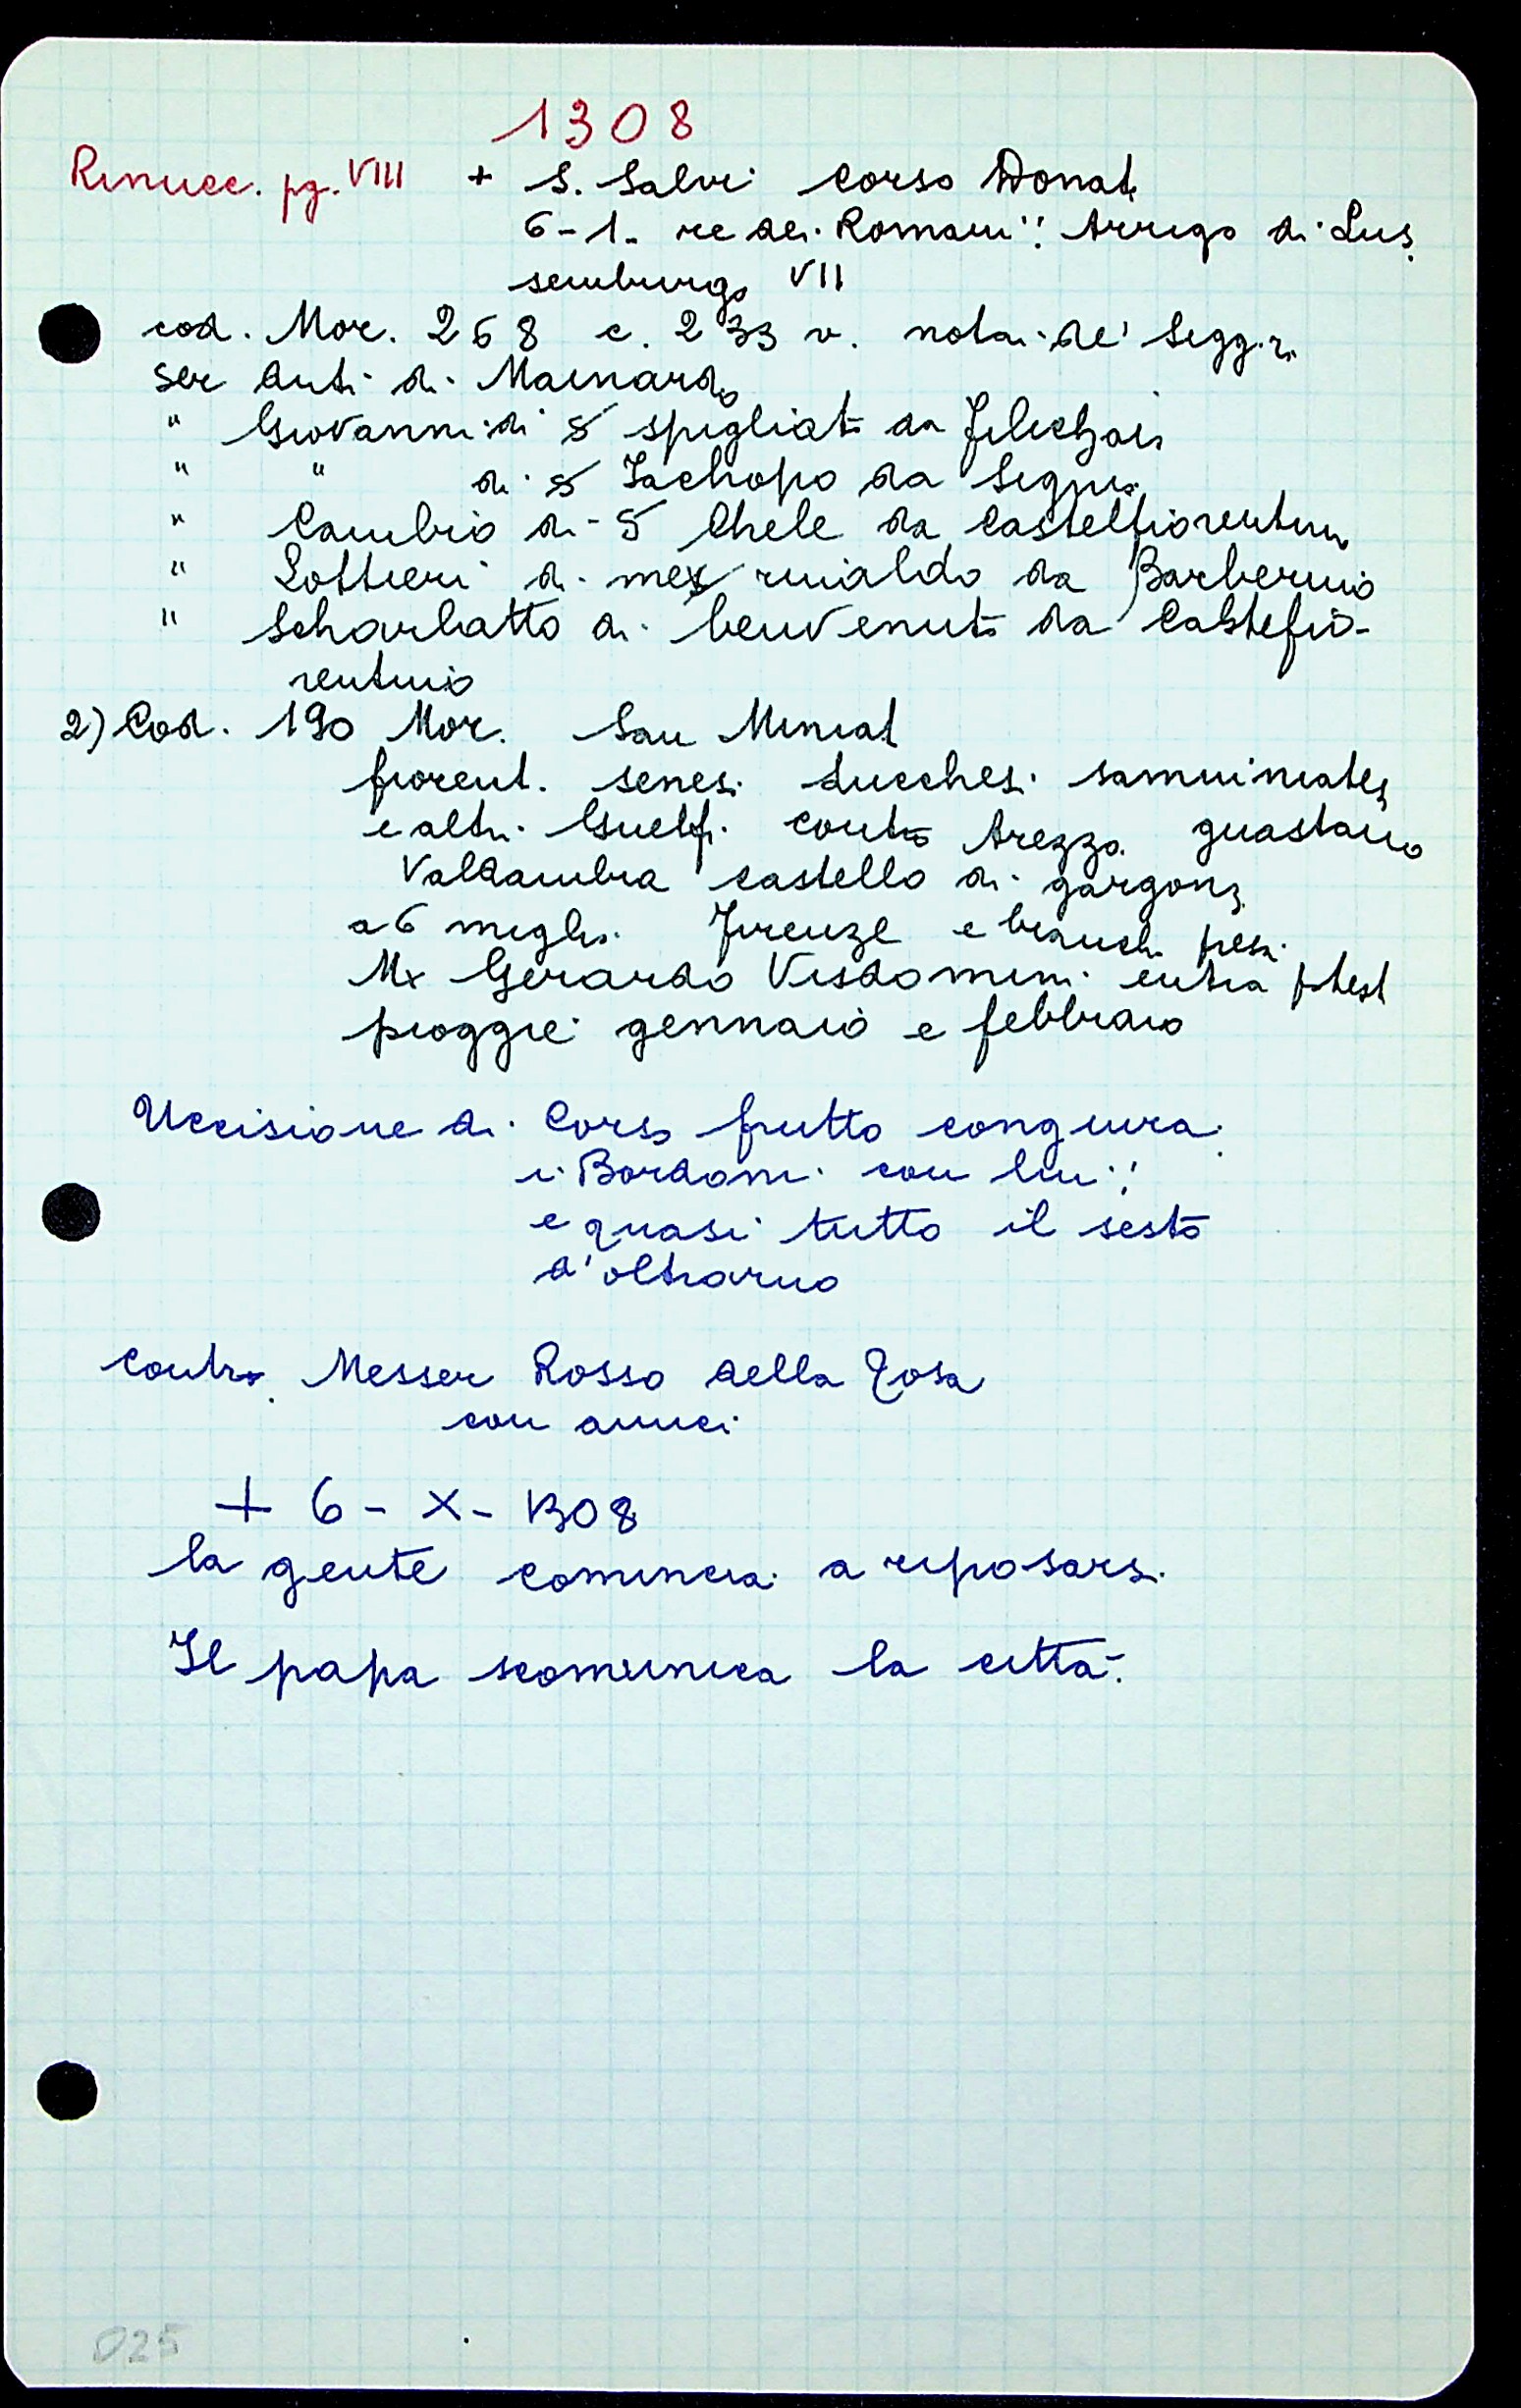 1308
Rinucc. pg. VIII + S. Salvi Corso Donati
6-1. re dei Romani: Arrigo di Lus
semburgo VII
cod. Mor. 268 c. 233 v. notai de' Sigg.ri
ser Anti di Mainardo
" Giovanni di S spigliati da Filichaia
" " di S Iachopo da Signa
" Cambio di S Chele da Castelfiorentino
" Lottieri di mes rinaldo da Barberino
" Scharlatto di benvenuto da Castefio-
rentino
2) Cod. 190 Mor. San Miniat
fiorent. senesi lucchesi samminiatesi
e altri Guelfi contro Arezzo guastano
Valdambra castello di gargonz
a 6 miglia Firenze e bianchi presi
Mx Gerardo Visdomini entra ptest
pioggie gennaio e febbraio
Uccisione di Corso frutto congiura
i Bordoni con lui:
e quasi tutto il sesto
d'oltrarno
contro Messer Rosso della Tosa
con amici
+ 6 - X - 1308
la gente comincia a riposarsi
Il papa scomunica la città.
025